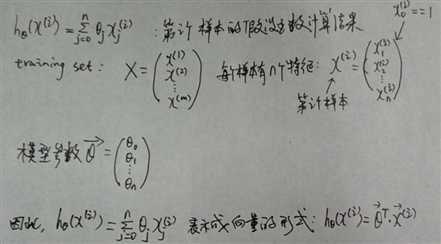 x₀⁽ⁱ⁾==1
hθ(x⁽ⁱ⁾)=∑ⁿⱼ₌₀ θⱼxⱼ⁽ⁱ⁾ :第i个样本的假设函数计算结果
training set: X=(x⁽¹⁾ x⁽²⁾ ⋮ x⁽ᵐ⁾) 每个样本有n个特征: x⁽ⁱ⁾=(x₁⁽ⁱ⁾ x₂⁽ⁱ⁾ ⋮ xₙ⁽ⁱ⁾)
第i个样本
模型参数 θ⃗=(θ₀ θ₁ ⋮ θₙ)
因此, hθ(x⁽ⁱ⁾)=∑ⁿⱼ₌₀ θⱼxⱼ⁽ⁱ⁾ 表示成向量的形式: hθ(x⁽ⁱ⁾)=θ⃗ᵀ·x⃗⁽ⁱ⁾